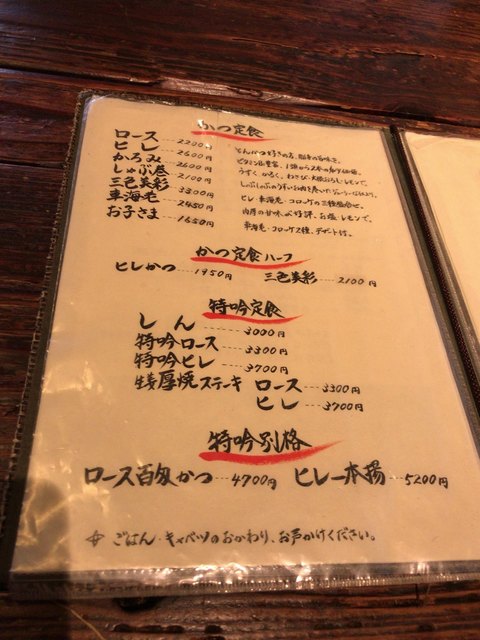 かつ定食
ロース 2200円 とんかつ好きの方、脂身の旨味を。
ヒレ 2600円 ビタミンB1豊富、1頭から2本の
かろみ 2600円 うすく、かろく、わさび・大根おろし・レモンで。
しゃぶ巻 2100円
三色美彩 3300円 ヒレ・車海老・コロッケの三種盛合せ。
車海老 2450円 肉厚の甘味が好評、お塩・レモンで。
お子さま 1650円 車海老・コロッケ2種、デザート付。
かつ定食ハーフ
ヒレかつ 1950円 三色美彩 2100円
特吟定食
しん 3000円
特吟ロース 3300円
特吟ヒレ 3700円
生姜厚焼ステーキ ロース 3300円
ヒレ 3700円
特吟別格
ロース百匁かつ 4700円 ヒレ一本揚 5200円
ごはん・キャベツのおかわり、お声かけください。